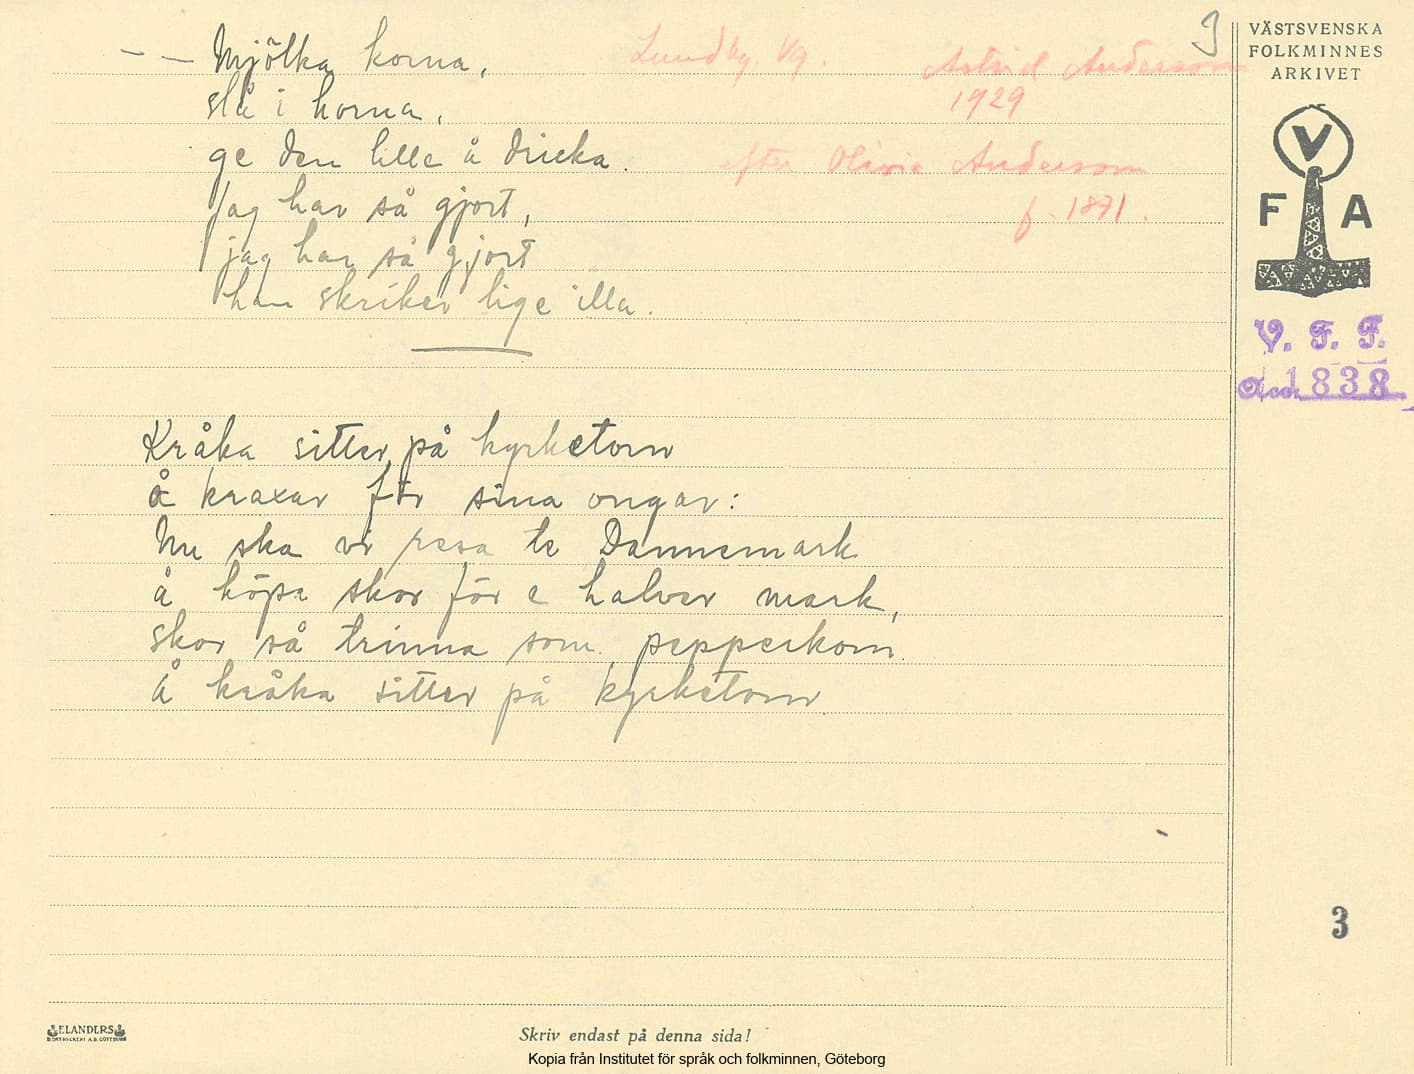 3
VÄSTSVENSKA
FOLKMINNES
ARKIVET
— — Mjölka korna,
slå i horna,
ge den lille å dricka.
Jag har så gjort,
jag har så gjort
han skriker lige illa.
Lundby, Vg.
Astrid Andersson
1929
efter Olivia Andersson
f. 1871.
V
F A
V. F. F.
Acc. 1838
Kråka sitter på kyrketorn
å kraxar för sina ongar:
Nu ska vi resa te Dannemark
å köpa skor för e halver mark,
skor så trinna som pepperkorn.
Å kråka sitter på kyrketorn
3
ELANDERS
BOKTRYCKERI A.B. GÖTEBORG
Skriv endast på denna sida!
Kopia från Institutet för språk och folkminnen, Göteborg